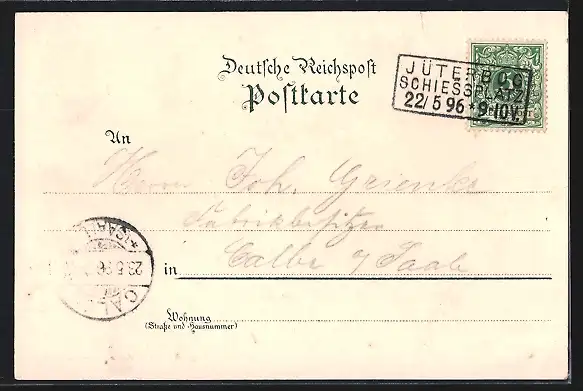 Deutsche Reichspost
Postkarte
JÜTERBOG
SCHIESSPLATZ
22/5 96 * 9-10V.
An
Herrn Joh. Grienke
Fabrikbesitzer
in Calbe a/Saale
23.5.96
Wohnung
(Straße und Hausnummer)